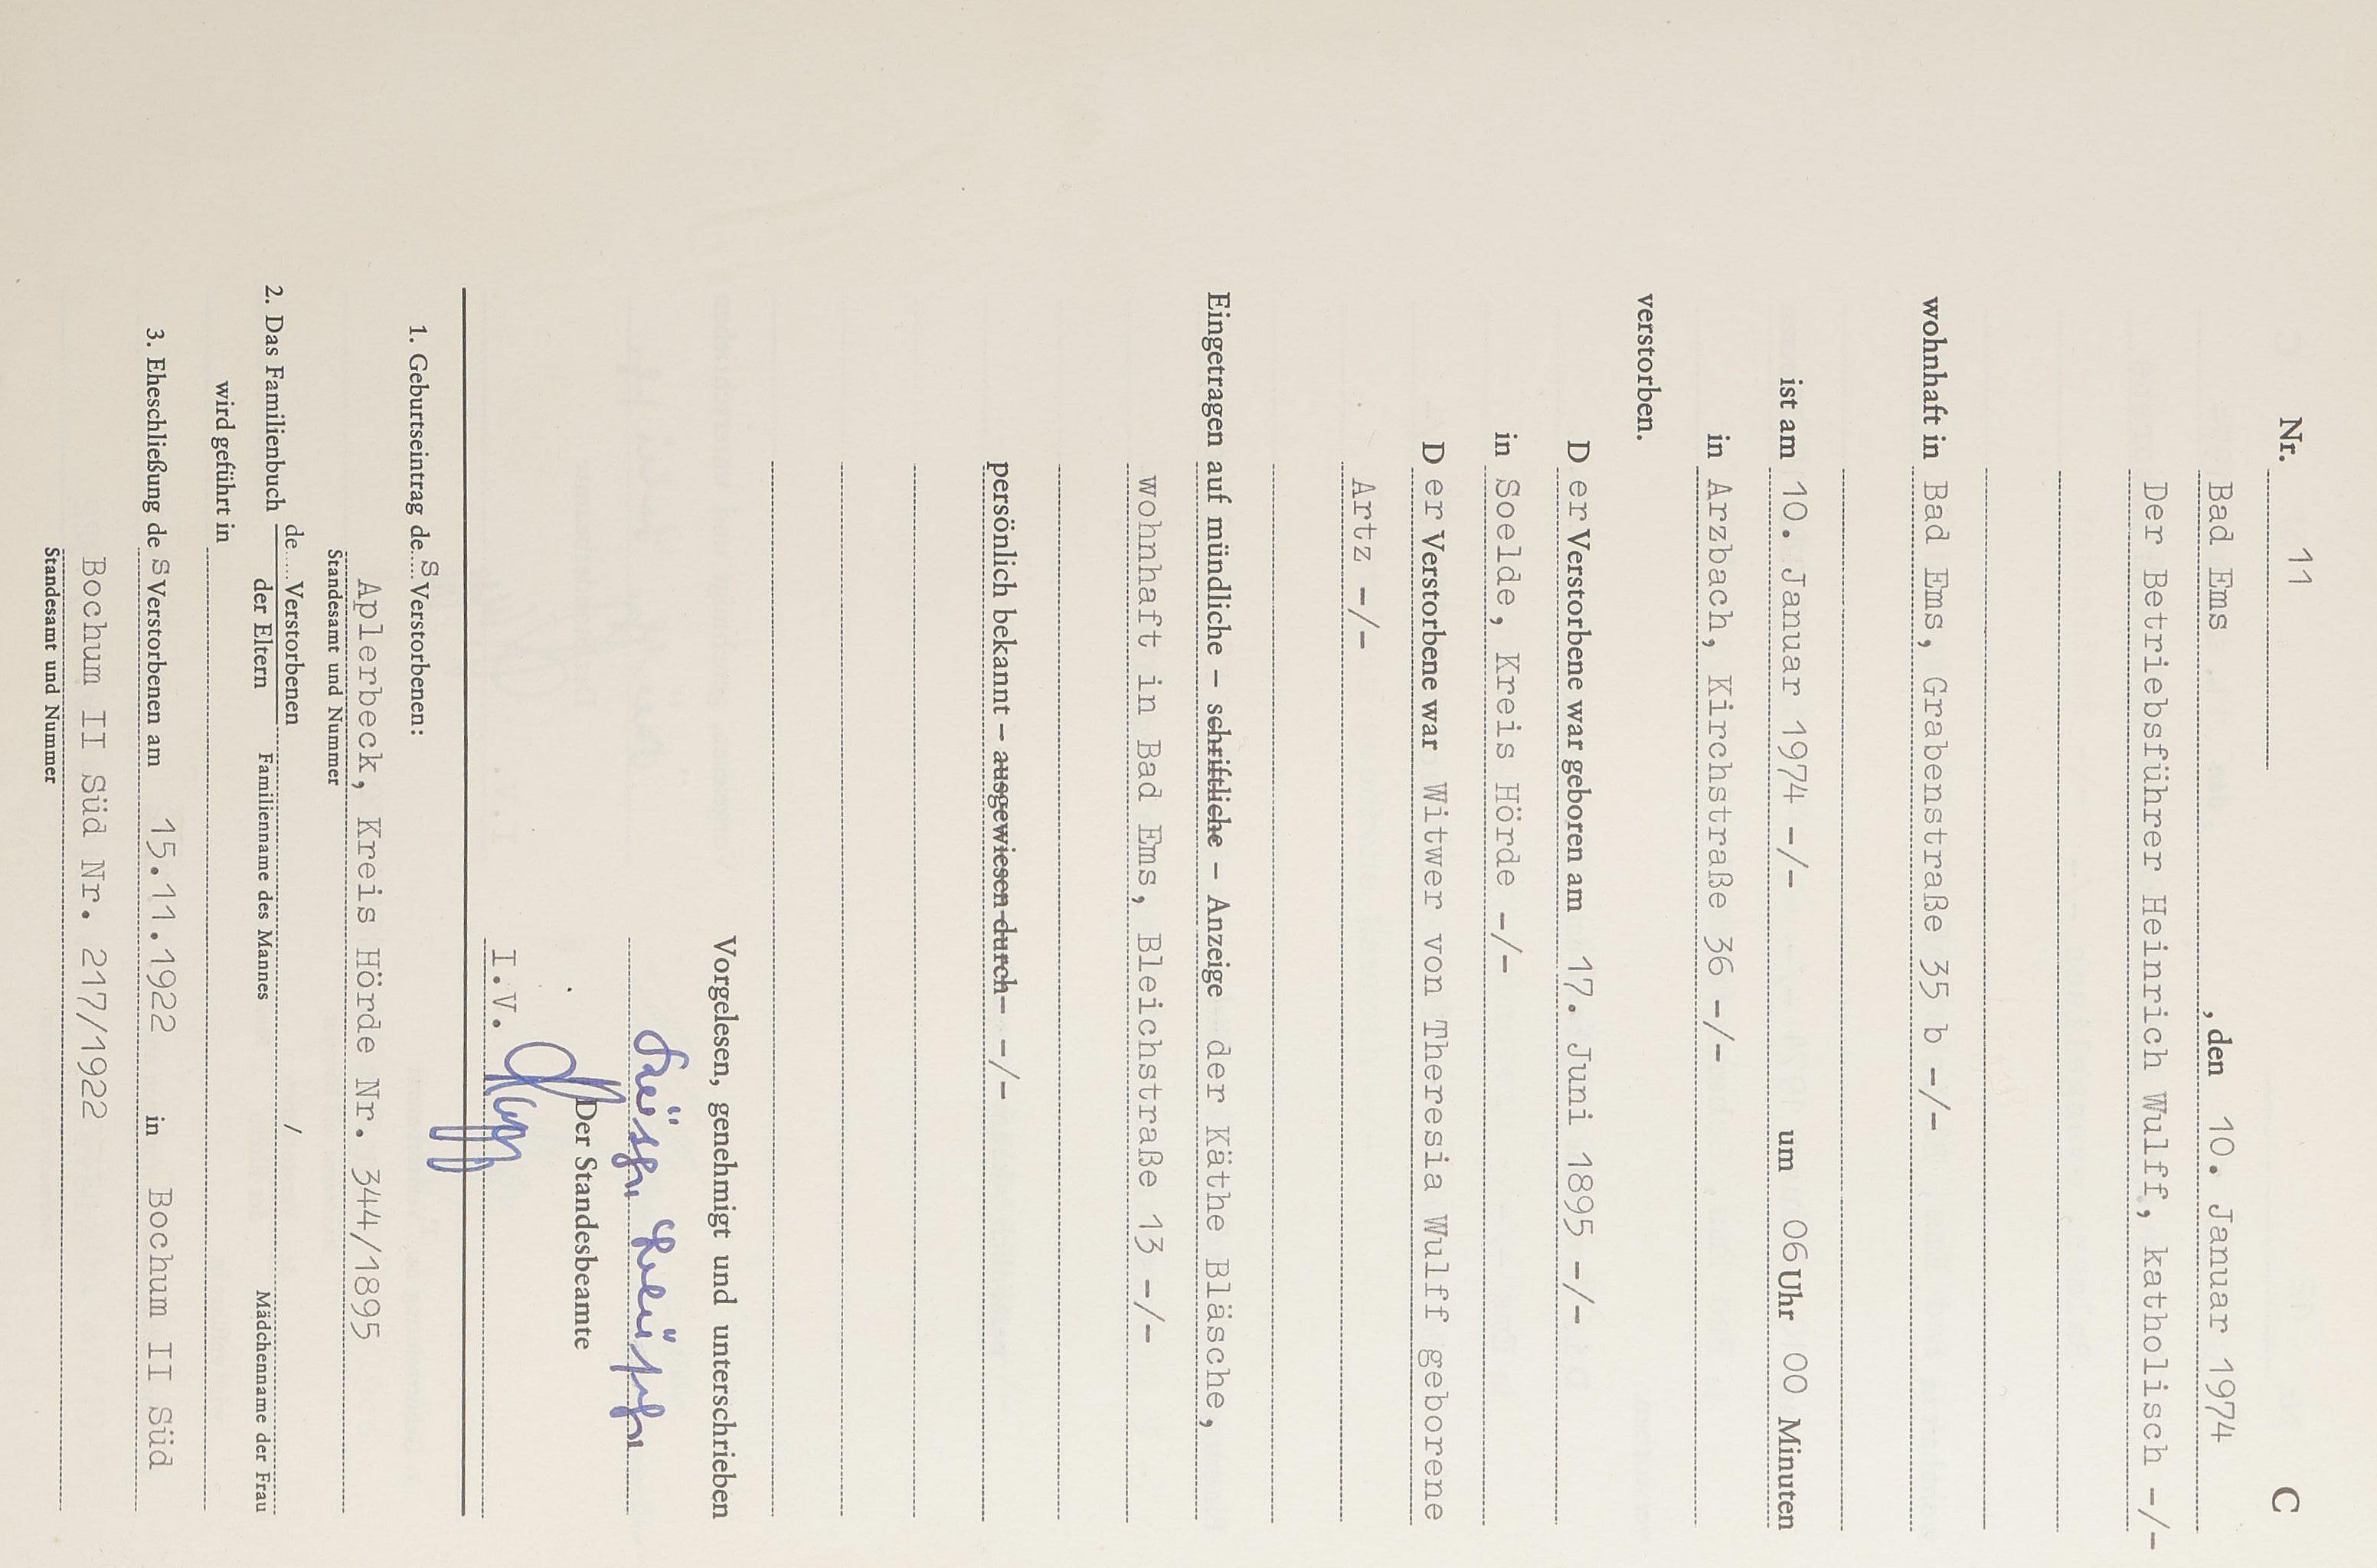 Nr. 11 C
Bad Ems , den 10. Januar 1974
Der Betriebsführer Heinrich Wulff, katholisch -/-
wohnhaft in Bad Ems, Grabenstraße 35 b -/-
ist am 10. Januar 1974 -/- um 06 Uhr 00 Minuten
in Arzbach, Kirchstraße 36 -/-
verstorben.
D er Verstorbene war geboren am 17. Juni 1895 -/-
in Soelde, Kreis Hörde -/-
D er Verstorbene war Witwer von Theresia Wulff geborene
Artz -/-
Eingetragen auf mündliche – schriftliche – Anzeige der Käthe Bläsche,
wohnhaft in Bad Ems, Bleichstraße 13 -/-
persönlich bekannt – ausgewiesen durch – -/-
Vorgelesen, genehmigt und unterschrieben
Der Standesbeamte
I.V.
1. Geburtseintrag de s Verstorbenen:
Aplerbeck, Kreis Hörde Nr. 344/1895
Standesamt und Nummer
2. Das Familienbuch de Verstorbenen /
der Eltern Familienname des Mannes Mädchenname der Frau
wird geführt in
3. Eheschließung de s Verstorbenen am 15.11.1922 in Bochum II Süd
Bochum II Süd Nr. 217/1922
Standesamt und Nummer